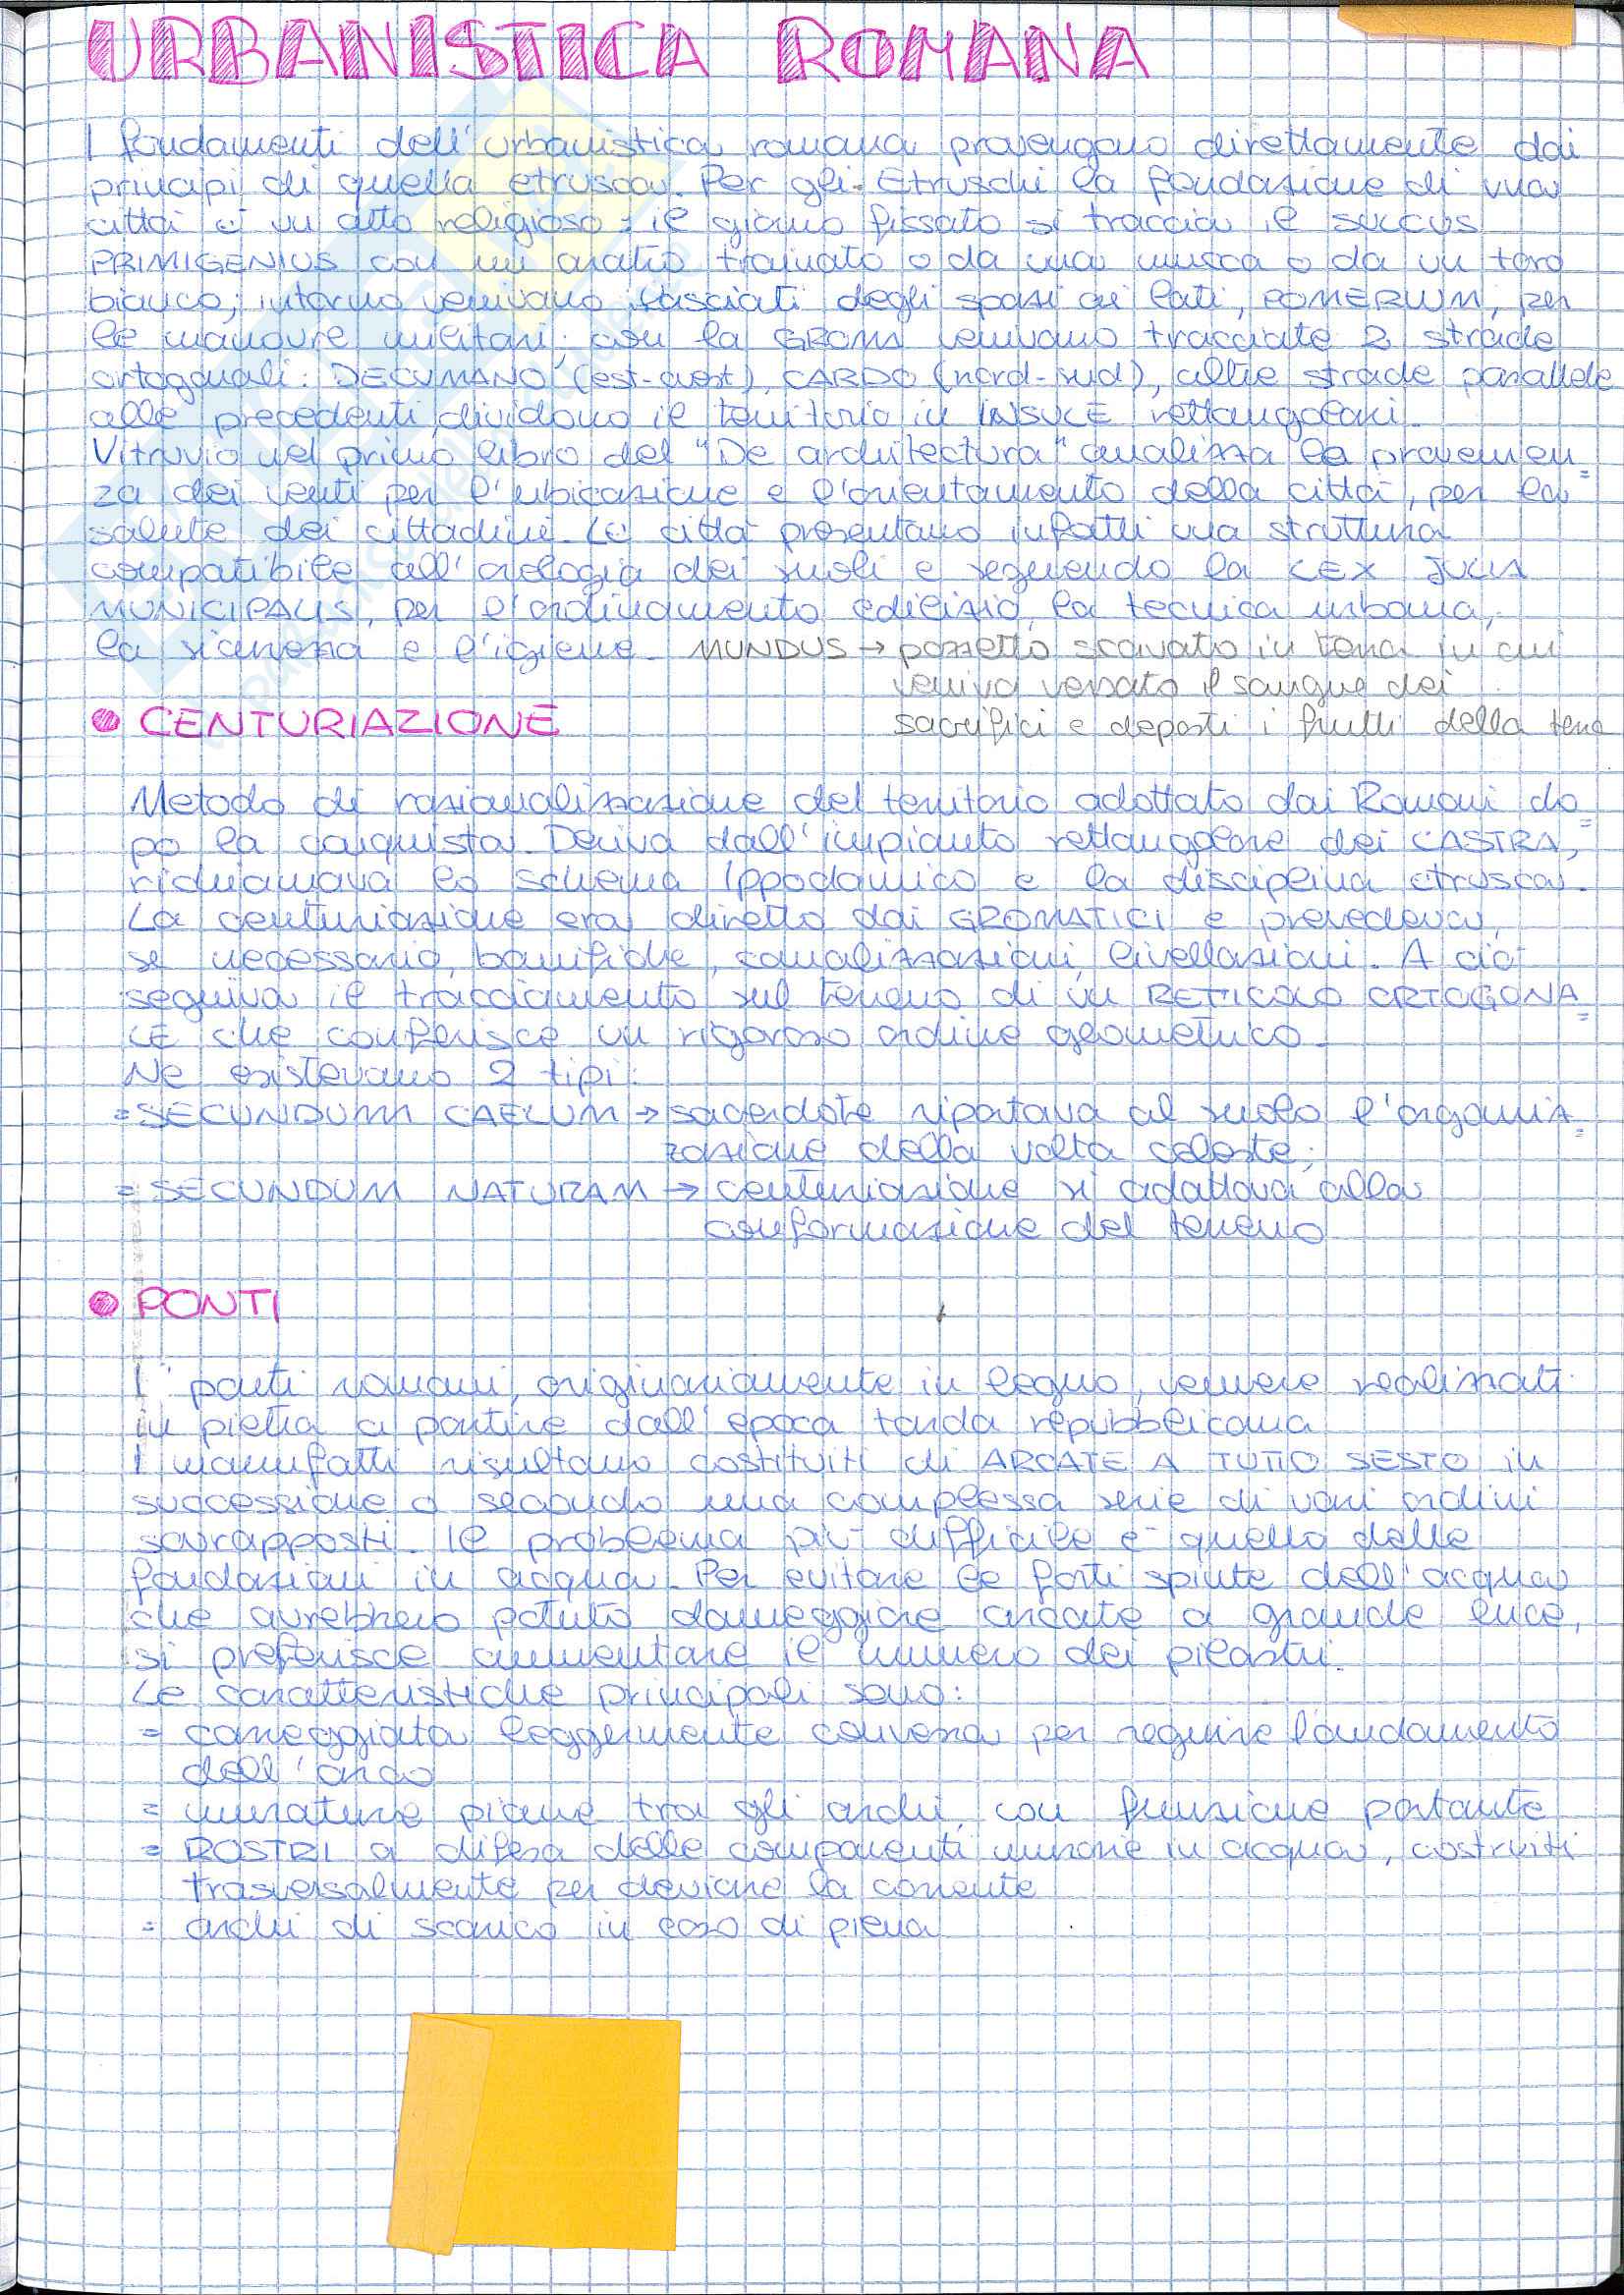 URBANISTICA ROMANA
I fondamenti dell'urbanistica romana provengono direttamente dai
principi di quella etrusca. Per gli Etruschi la fondazione di una
città è un atto religioso: il giorno fissato si traccia il SULCUS
PRIMIGENIUS con un aratro trainato o da una mucca o da un toro
bianco; intorno venivano lasciati degli spazi ai lati, POMERIUM, per
le manovre militari; con la GROMA venivano tracciate 2 strade
ortogonali: DECUMANO (est-ovest), CARDO (nord-sud), altre strade parallele
alle precedenti dividono il territorio in INSULE rettangolari.
Vitruvio nel primo libro del "De architectura" analizza la provenien=
za dei venti per l'ubicazione e l'orientamento della città, per la
salute dei cittadini. Le città presentano infatti una struttura
compatibile all' dei suoli e seguendo la LEX JULIA
MUNICIPALIS, per l'ordinamento edilizio, la tecnica urbana,
la sicurezza e l'igiene. MUNDUS → pozzetto scavato in terra in cui
veniva versato il sangue dei
sacrifici e deposti i frutti della terra
• CENTURIAZIONE
Metodo di razionalizzazione del territorio adottato dai Romani do=
po la conquista. Deriva dall'impianto rettangolare dei CASTRA,
richiamava lo schema Ippodamico e la disciplina etrusca.
La centuriazione era diretta dai GROMATICI e prevedeva,
se necessario, bonifiche, canalizzazioni, livellazioni. A ciò
seguiva il tracciamento sul terreno di un RETICOLO ORTOGONA=
LE che conferisce un rigoroso ordine geometrico.
Ne esistevano 2 tipi:
= SECUNDUM CAELUM → sacerdote riportava al suolo l'organiz=
zazione della volta celeste;
= SECUNDUM NATURAM → centuriazione si adattava alla
conformazione del terreno
• PONTI
I ponti romani, originariamente in legno, vennero realizzati
in pietra a partire dall'epoca tarda repubblicana
I manufatti risultano costituiti di ARCATE A TUTTO SESTO in
successione o secondo una complessa serie di vari ordini
sovrapposti. Il problema più difficile è quello delle
fondazioni in acqua. Per evitare le forti spinte dell'acqua
che avrebbero potuto danneggiare arcate a grande luce,
si preferisce aumentare il numero dei pilastri.
Le caratteristiche principali sono:
= carreggiata leggermente convessa per seguire l'andamento
dell'arco
= murature piane tra gli archi, con funzione portante
= ROSTRI a difesa delle componenti murarie in acqua, costruiti
trasversalmente per deviare la corrente
= archi di scarico in caso di piena